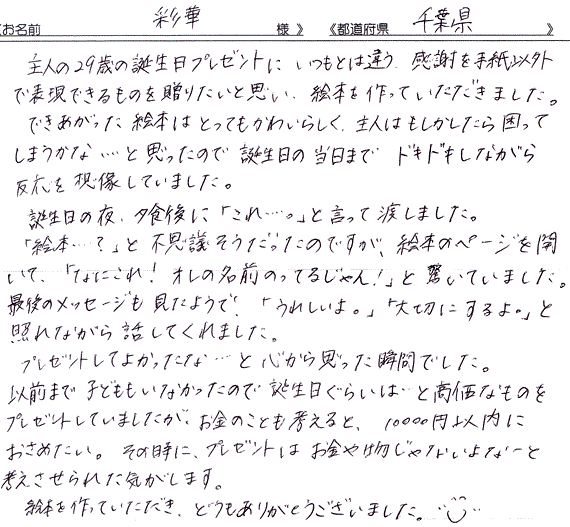 《お名前 彩華 様》《都道府県 千葉県 》
主人の29歳の誕生日プレゼントに いつもとは違う 感謝を手紙以外
で表現できるものを贈りたいと思い、絵本を作っていただきました。
できあがった絵本はとってもかわいらしく、主人はもしかしたら困って
しまうかな……と思ったので 誕生日の当日まで ドキドキしながら
反応を想像していました。
誕生日の夜、夕食後に「これ…。」と言って渡しました。
「絵本…?」と不思議そうだったのですが、絵本のページを開
いて、「なにこれ!オレの名前のってるじゃん!」と驚いていました。
最後のメッセージも見たようで、「うれしいよ。」「大切にするよ。」と
照れながら話してくれました。
プレゼントしてよかったな…と心から思った瞬間でした。
以前まで子どももいなかったので誕生日ぐらいは…と高価なものを
プレゼントしていましたが、お金のことも考えると、10000円以内に
おさめたい。その時に、プレゼントは お金や物じゃないよなーと
考えさせられた気がします。
絵本を作っていただき、どうもありがとうございました。